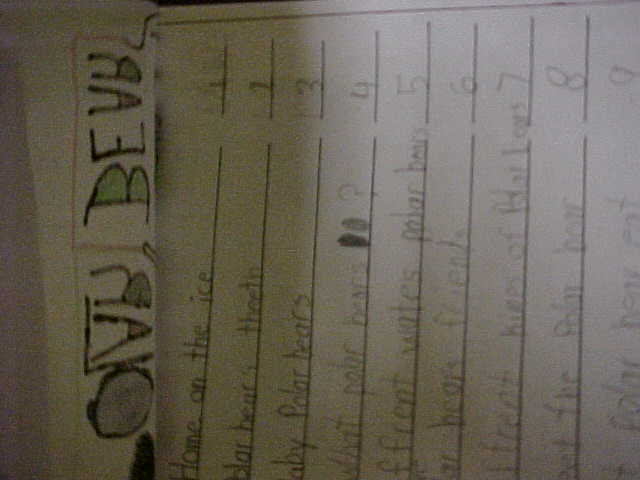 OLAR BEAR
Home on the ice 1
olar bears theeth 2
aby Polar bears 3
What palar bears ? 4
ffrent writes polar bears 5
ar bears friends 6
ffrent kines of Polar bears 7
out the Polar bear 8
Polar bear eat 9